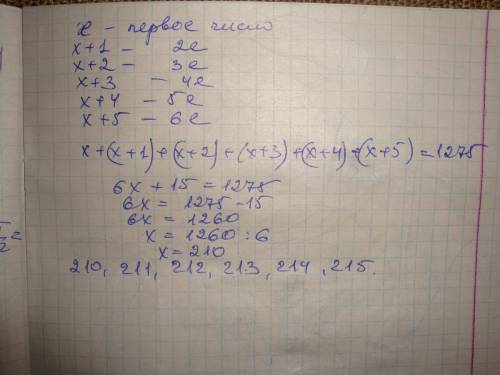 x - первое число
x+1 - 2е
x+2 - 3е
x+3 - 4е
x+4 - 5е
x+5 - 6е
x+(x+1)+(x+2)+(x+3)+(x+4)+(x+5)=1275
6x+15=1275
6x=1275-15
6x=1260
x=1260:6
x=210
210, 211, 212, 213, 214, 215.